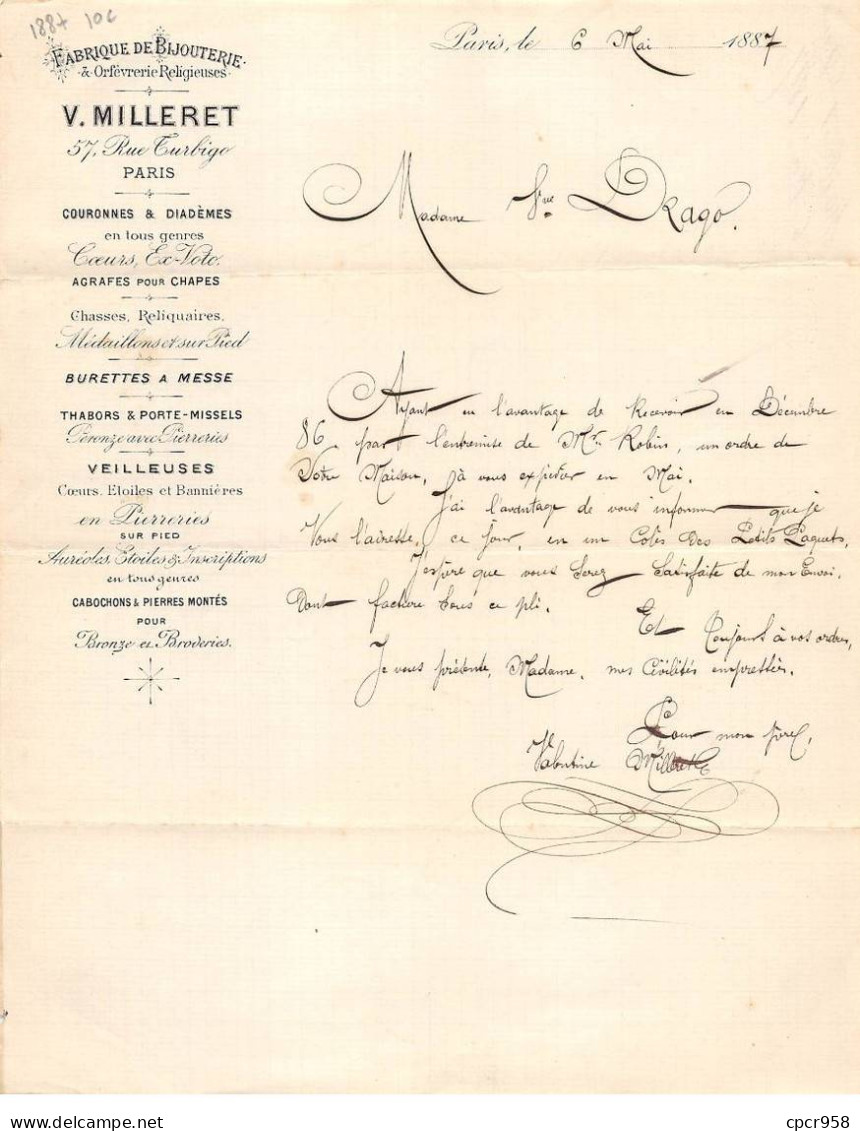 1887 10c
FABRIQUE DE BIJOUTERIE
& Orfèvrerie Religieuses
V. MILLERET
57, Rue Turbigo
PARIS
COURONNES & DIADÈMES
en tous genres
Cœurs, Ex-Voto.
AGRAFES POUR CHAPES
Chasses, Reliquaires,
Médaillons et sur Pied
BURETTES A MESSE
THABORS & PORTE-MISSELS
Bronze avec Pierreries
VEILLEUSES
Cœurs, Etoiles et Bannières
en Pierreries
SUR PIED
Auréoles, Etoiles & Inscriptions
en tous genres
CABOCHONS & PIERRES MONTÉS
POUR
Bronze et Broderies.
Paris, le 6 Mai 1887
Madame Vve Drago.
Ayant eu l'avantage de Recevoir en Décembre
86 par l'entremise de Mr Robin, un ordre de
Votre Maison, à vous expédier en Mai.
J'ai l'avantage de vous informer que je
Vous l'adresse, ce jour, en un Colis des Petits Paquets,
J'espère que vous serez Satisfaite de mon Envoi.
Dont facture sous ce pli.
Et Toujours à vos ordres,
Je vous présente, Madame, mes Civilités empressées.
Pour mon père,
Valentine Milleret
cpcr958